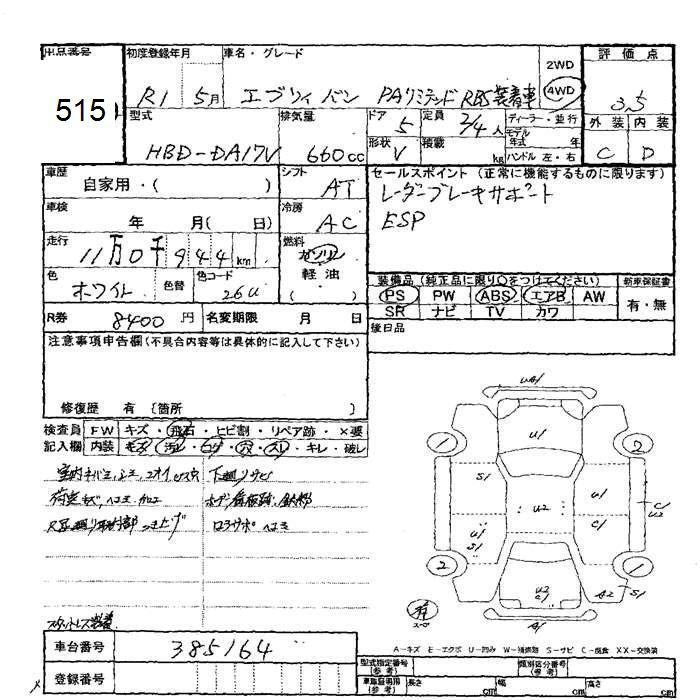 出品番号
515
初度登録年月
R1 5月
車名・グレード
エブリィ バン PAリミテッド RBS装着車
2WD
4WD
評価点
3.5
外装 内装
C D
型式
HBD-DA17V
排気量
660cc
ドア
5
定員
2/4人
形状
V
積載
kg
ディーラー・並行
モデル
年式 年
ハンドル 左・右
車歴
自家用・( )
シフト
AT
車検
年 月( 日)
冷房
AC
走行
11万0千944km
燃料
ガソリン
軽油
( )
色
ホワイト
色替
色コード
26U
セールスポイント(正常に機能するものに限ります)
レーダーブレーキサポート
ESP
装備品(純正品に限り○をつけてください)
新車保証書
PS PW ABS エアB AW
有・無
SR ナビ TV カワ
後日品
R券
8400円
名変期限 月 日
注意事項申告欄(不具合内容等は具体的に記入して下さい)
修復歴 有 [箇所 ]
検査員
記入欄
FW キズ・飛石・ヒビ割・リペア跡・×要
内装 キズ・汚レ・コゲ・穴・スレ・キレ・破レ
下廻リサビ
スタットレス装着
車台番号
385164
登録番号
U1
U1
1
2
S1
U1
C1
U2
U2
U1
S1
C1
2
1
U2
C1
A2
S1
A1
有
A-キズ E-エクボ U-凹み W-補修跡 S-サビ C-腐食 XX-交換済
型式指定番号
(参考)
類別区分番号
(参考)
車庫証明用
(参考)
長さ cm
幅 cm
高さ cm